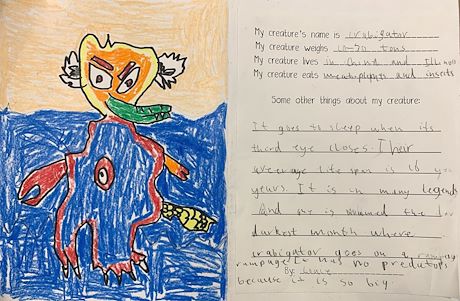 My creature's name is crabigator
My creature weighs 60-70 tons
My creature lives in China and Illinois
My creature eats meat, plants and insects
Some other things about my creature:
It goes to sleep when its
third eye closes. Their
average life span is 16
years. It is in many legends
And is named the
darkest month where
crabigator goes on a
rampage. It has no predators
By:
because it is so big.